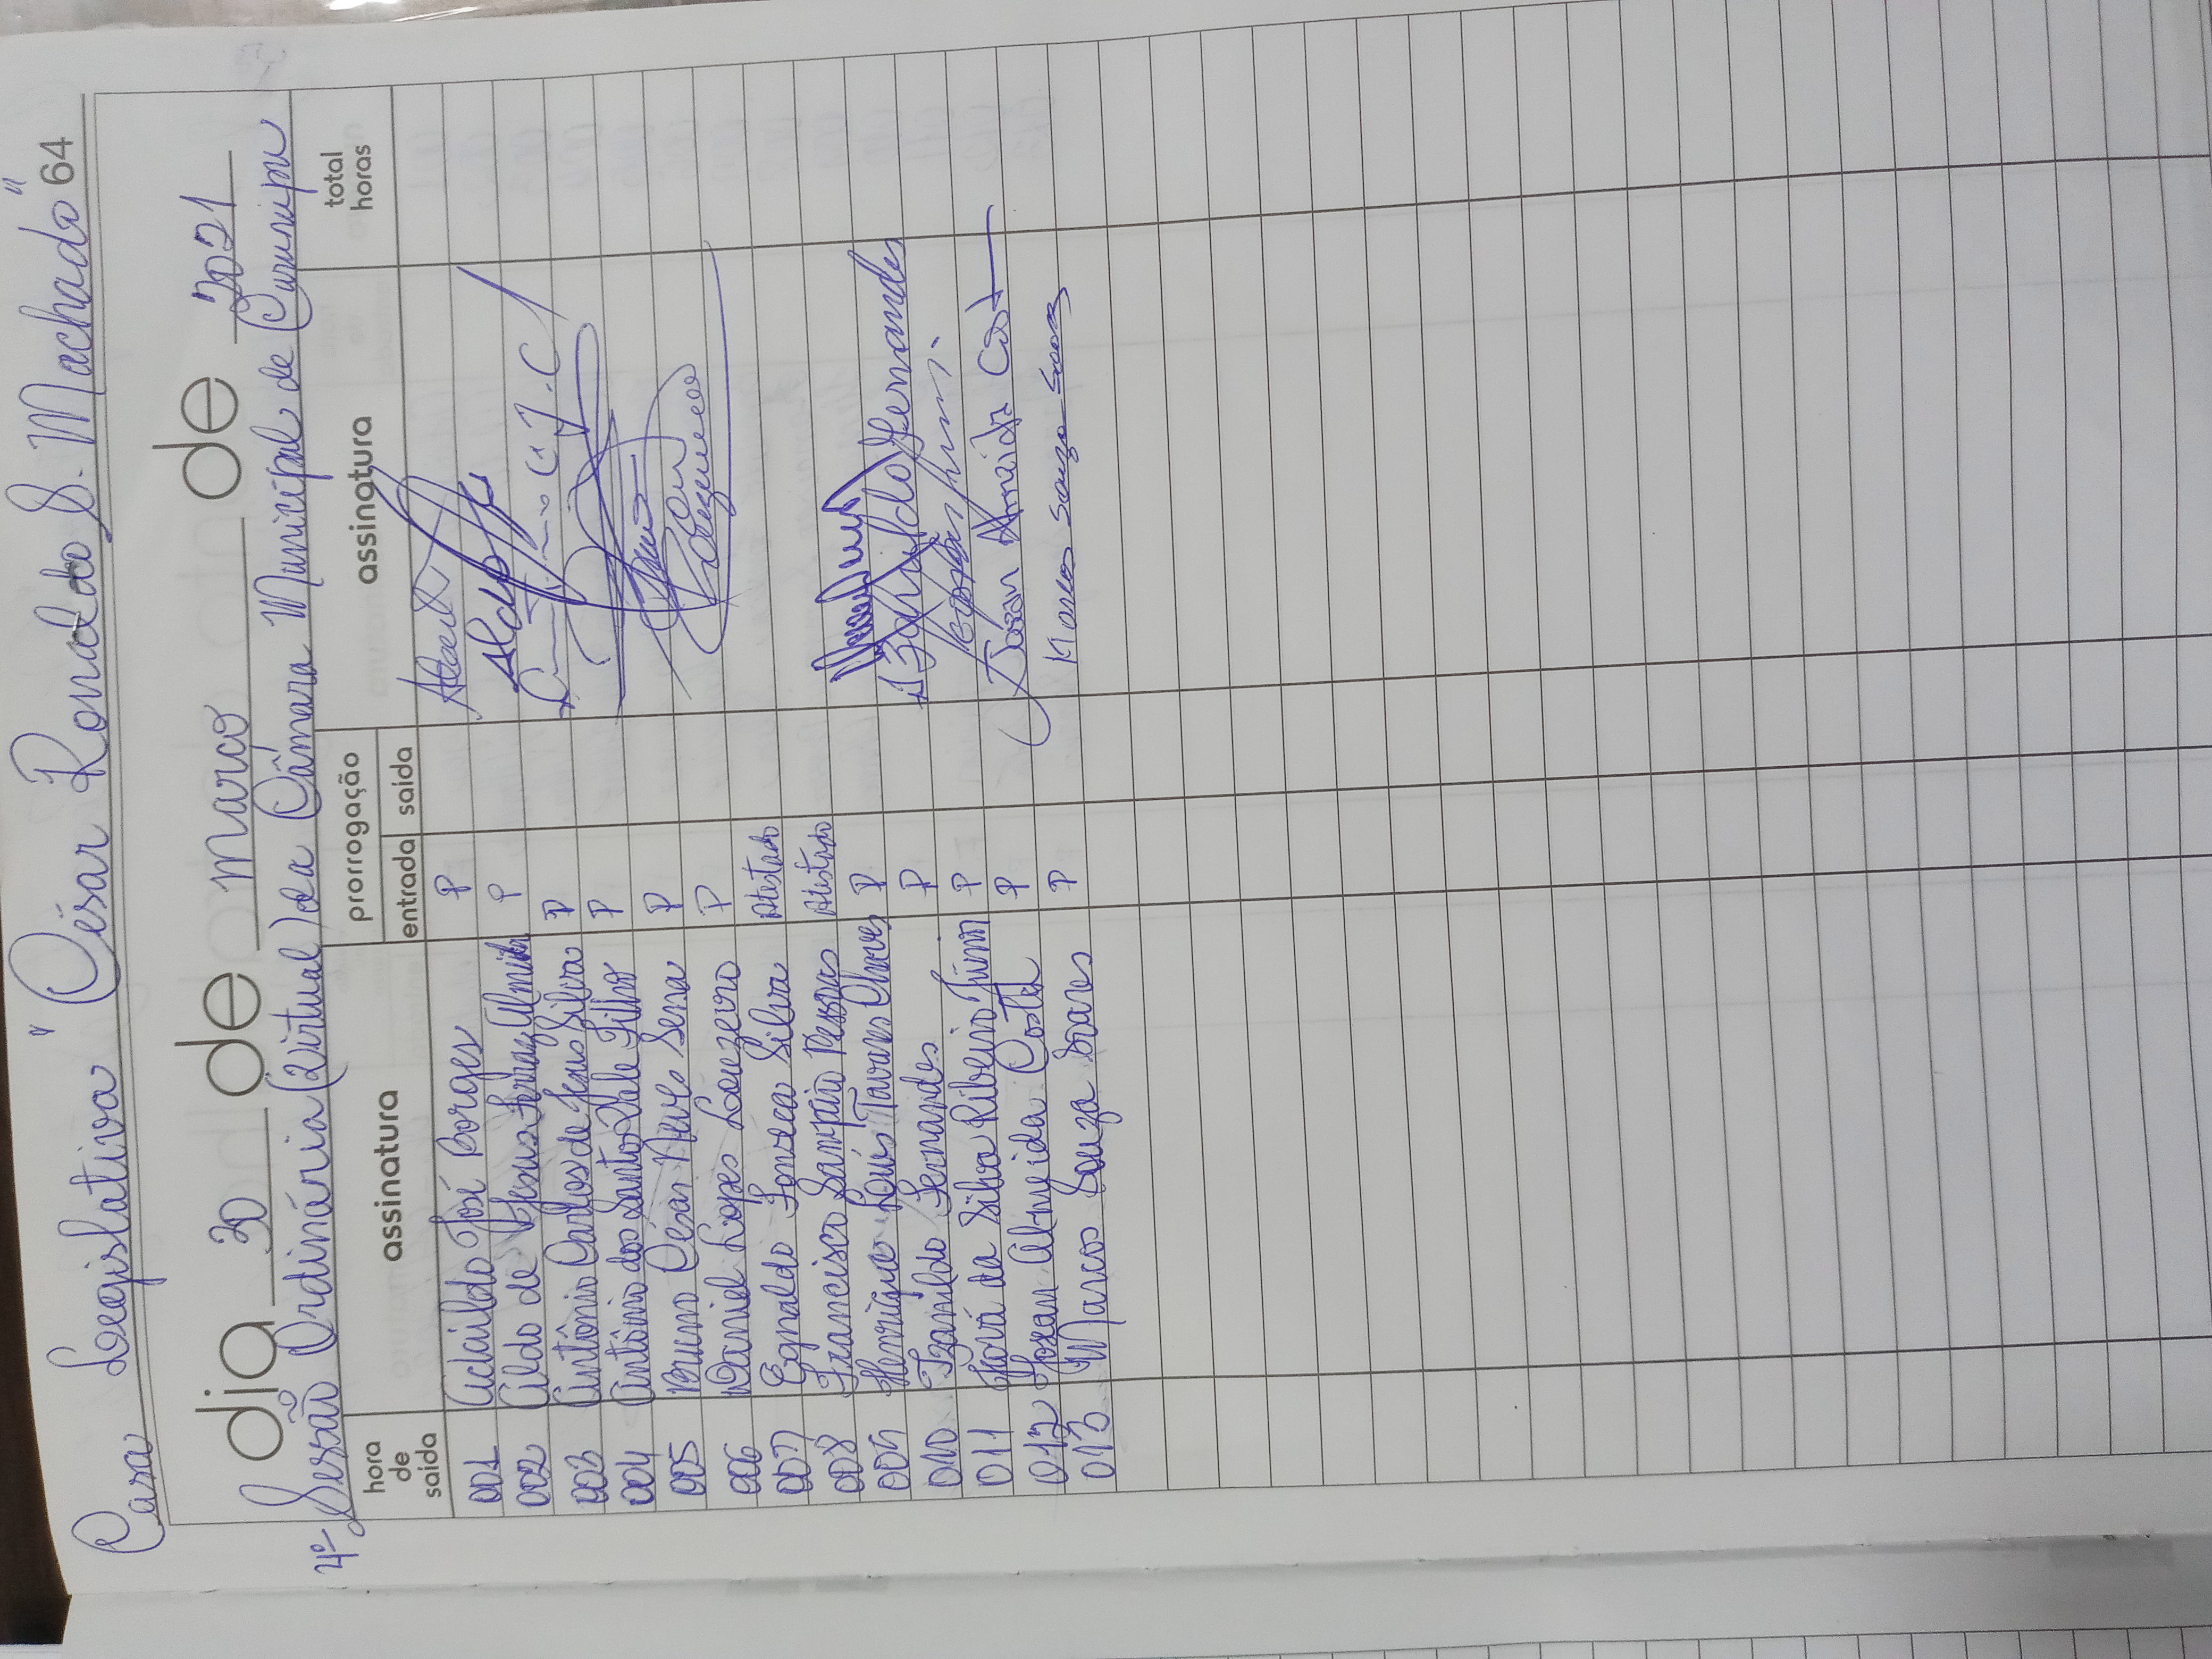 Casa Legislativa "César Ronaldo S. Machado"
64
dia 30 de março de 2021
4ª Sessão Ordinária (Virtual) da Câmara Municipal de Cururupu
hora de saída assinatura prorrogação entrada saída assinatura total horas
001 Adaildo José Borges P
002 Aldo de Jesus Ferraz Almeida P Aldo
003 Antônio Carlos de Jesus Silva P
004 Antônio dos Santos Filho P
005 Bruno César Neves Sena P
006 Daniel Lopes Louzeiro P
007 Egnaldo Fonseca Silva Atestado
008 Francisco Sampaio Pessoas Atestado
009 Henrique Louis Tavares Chaves P
010 Izanildo Fernandes P Izanildo Fernandes
011 Jová da Silva Ribeiro Júnior P
012 Josean Almeida Costa P Josean Almeida Costa
013 Marcos Souza Soares P Marcos Souza Soares